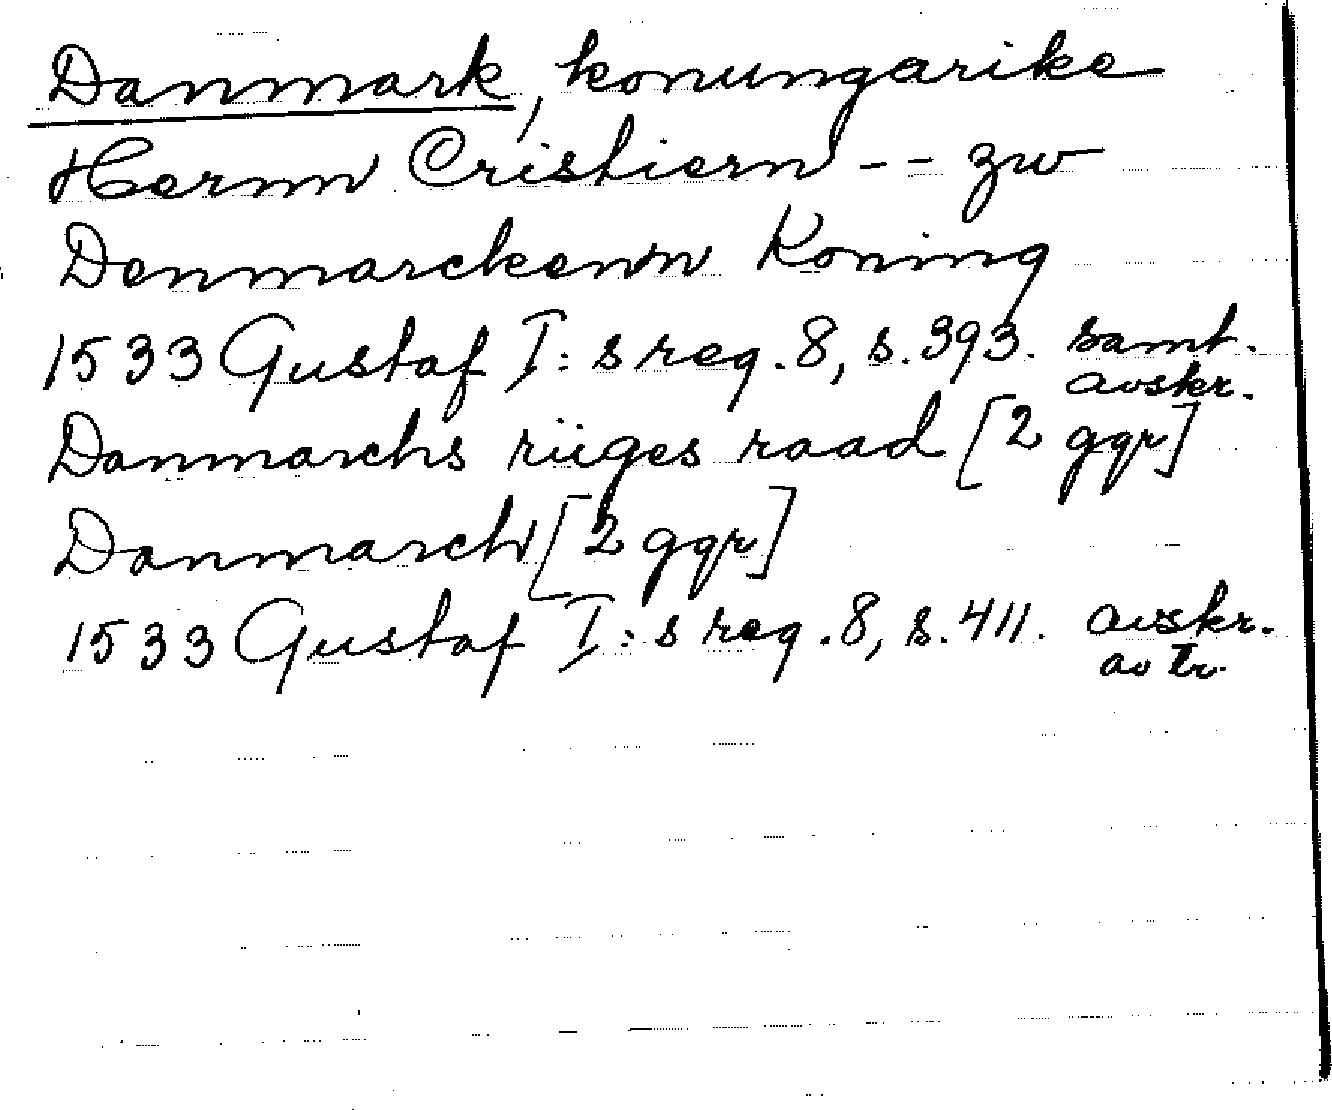 Danmark, konungarike
Hernn Cristiern - - zw
Denmarckenn Koning
1533 Gustaf I:s reg. 8, s. 393. samt. avskr.
Danmarchs riiges raad [2 ggr]
Danmarch [2 ggr]
1533 Gustaf I:s reg. 8, s. 411. avskr. av tr.